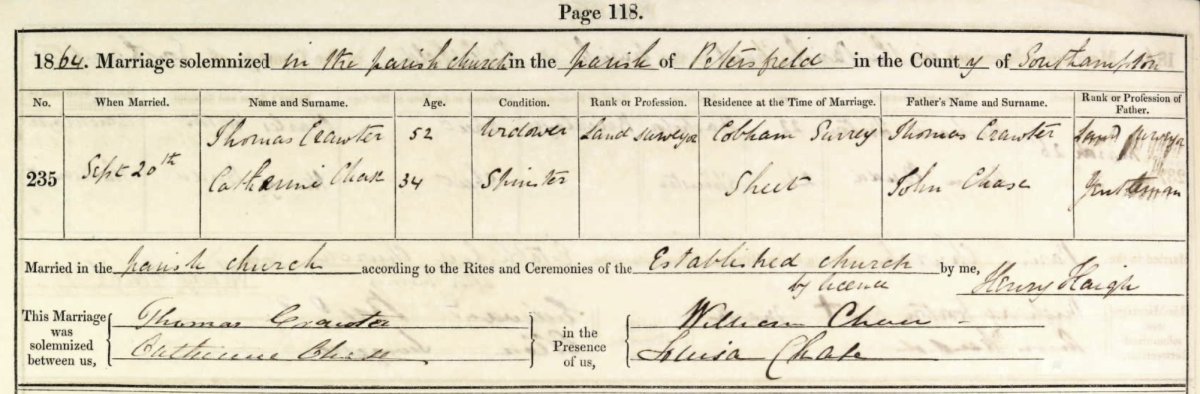 Page 118.
1864. Marriage solemnized in the parish church in the parish of Petersfield in the County of Southampton
No. When Married. Name and Surname. Age. Condition. Rank or Profession. Residence at the Time of Marriage. Father's Name and Surname. Rank or Profession of Father.
Thomas Crawter 52 Widower Land surveyor Cobham Surrey Thomas Crawter Land surveyor
235 Sept 20th Catherine Chase 34 Spinster Sheet John Chase Gentleman
Married in the parish church according to the Rites and Ceremonies of the Established church by me, Henry Haigh
by licence
This Marriage was solemnized between us, Thomas Crawter in the Presence of us, William Chase
Catherine Chase Louisa Chase